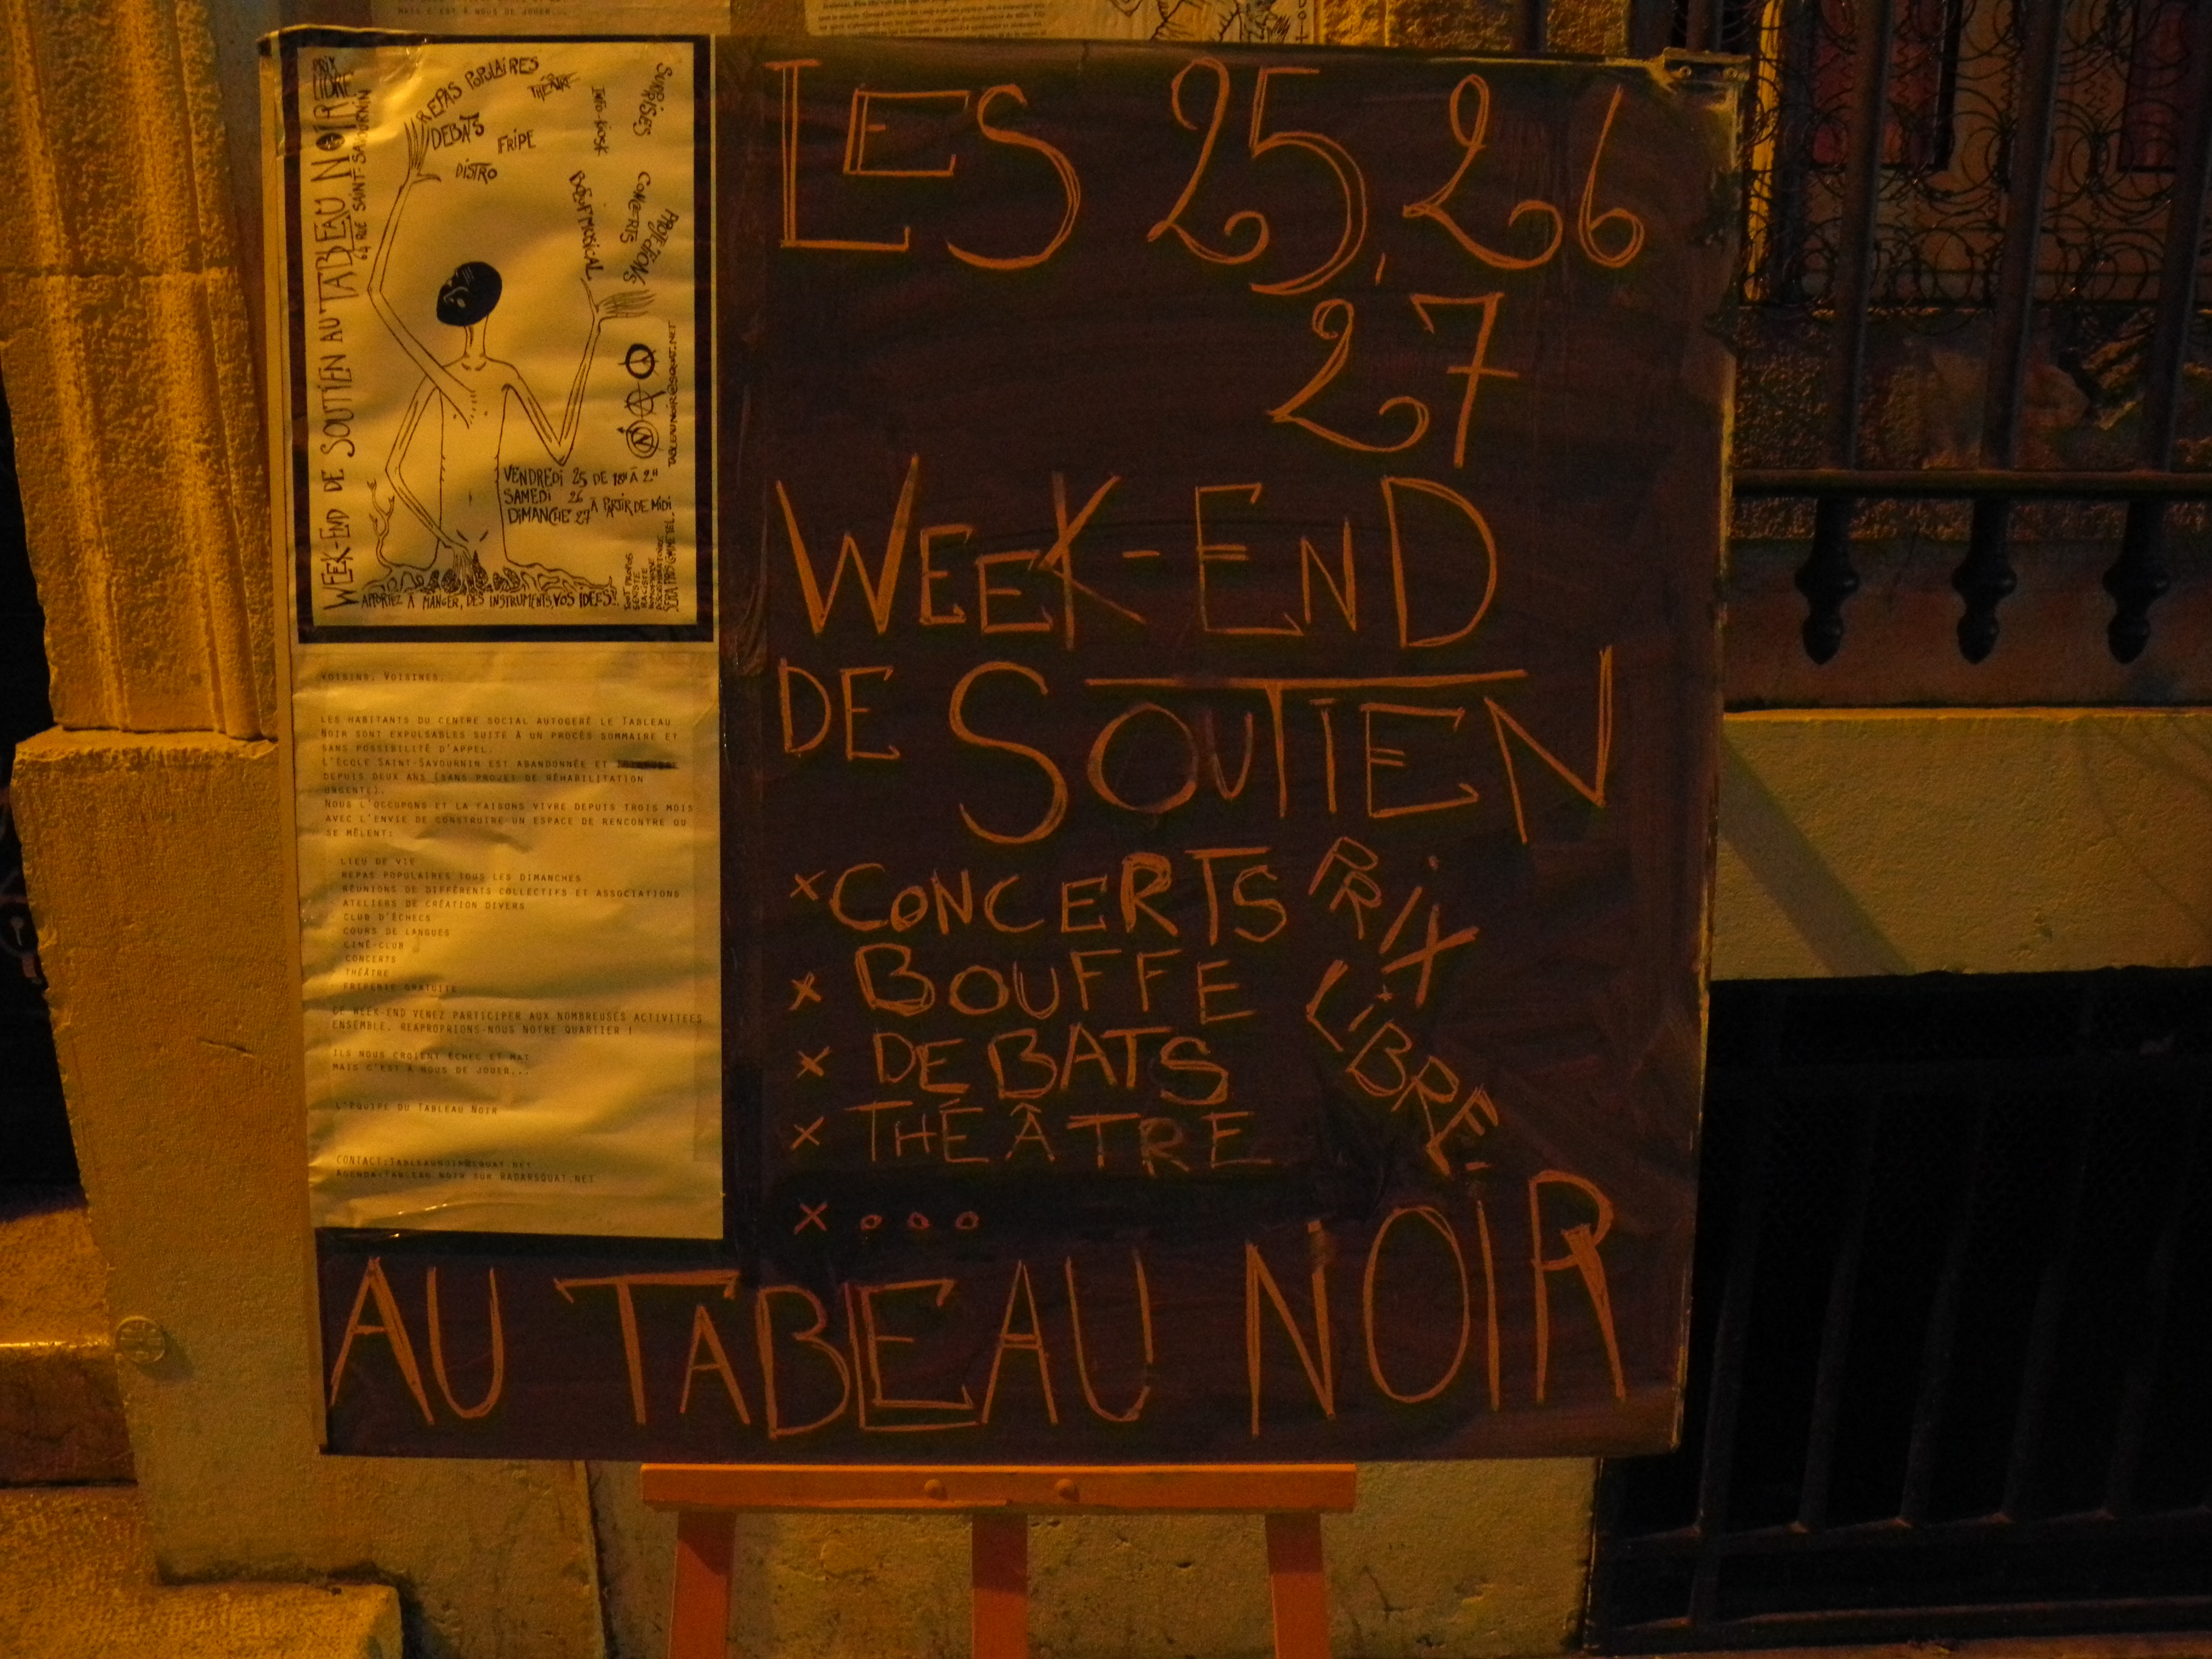 MAIS C'EST À NOUS DE JOUER...
PRIX LIBRE
WEEK-END DE SOUTIEN AU TABLEAU NOIR
64 RUE SAINT-SAVOURNIN
REPAS POPULAIRES
THEÂTRE
DEBATS
FRIPE
DISTRO
INFO-KIOSK
SURPRISES
BOEUF MUSICAL
CONCERTS
PROJECTIONS
TABLEAUNOIR@SQUAT.NET
VENDREDI 25 DE 18H À 2H
SAMEDI 26
DIMANCHE 27 À PARTIR DE MIDI
APPORTEZ À MANGER, DES INSTRUMENTS, VOS IDEES!
TOUT PROPOS
SEXISTE
RACISTE
HOMOPHOBE
SERA PRIS COMME TEL.
VOISINS, VOISINES,
LES HABITANTS DU CENTRE SOCIAL AUTOGERÉ LE TABLEAU
NOIR SONT EXPULSABLES SUITE À UN PROCÈS SOMMAIRE ET
SANS POSSIBILITÉ D'APPEL.
L'ÉCOLE SAINT-SAVOURNIN EST ABANDONNÉE ET
DEPUIS DEUX ANS (SANS PROJET DE RÉHABILITATION
URGENTE).
NOUS L'OCCUPONS ET LA FAISONS VIVRE DEPUIS TROIS MOIS
AVEC L'ENVIE DE CONSTRUIRE UN ESPACE DE RENCONTRE OU
SE MÊLENT:
LIEU DE VIE
REPAS POPULAIRES TOUS LES DIMANCHES
RÉUNIONS DE DIFFÉRENTS COLLECTIFS ET ASSOCIATIONS
ATELIERS DE CRÉATION DIVERS
CLUB D'ÉCHECS
COURS DE LANGUES
CINÉ-CLUB
CONCERTS
THÉÂTRE
FRIPERIE GRATUITE
CE WEEK-END VENEZ PARTICIPER AUX NOMBREUSES ACTIVITEES
ENSEMBLE, REAPROPRIONS-NOUS NOTRE QUARTIER !
ILS NOUS CROIENT ÉCHEC ET MAT
MAIS C'EST À NOUS DE JOUER...
L'ÉQUIPE DU TABLEAU NOIR
CONTACT:TABLEAUNOIR@SQUAT.NET
AGENDA:TABLEAU NOIR SUR RADARSQUAT.NET
LES 25, 26
27
WEEK-END
DE SOUTIEN
× CONCERTS
× BOUFFE
× DEBATS
× THÉÂTRE
× ...
PRIX
LIBRE
AU TABLEAU NOIR